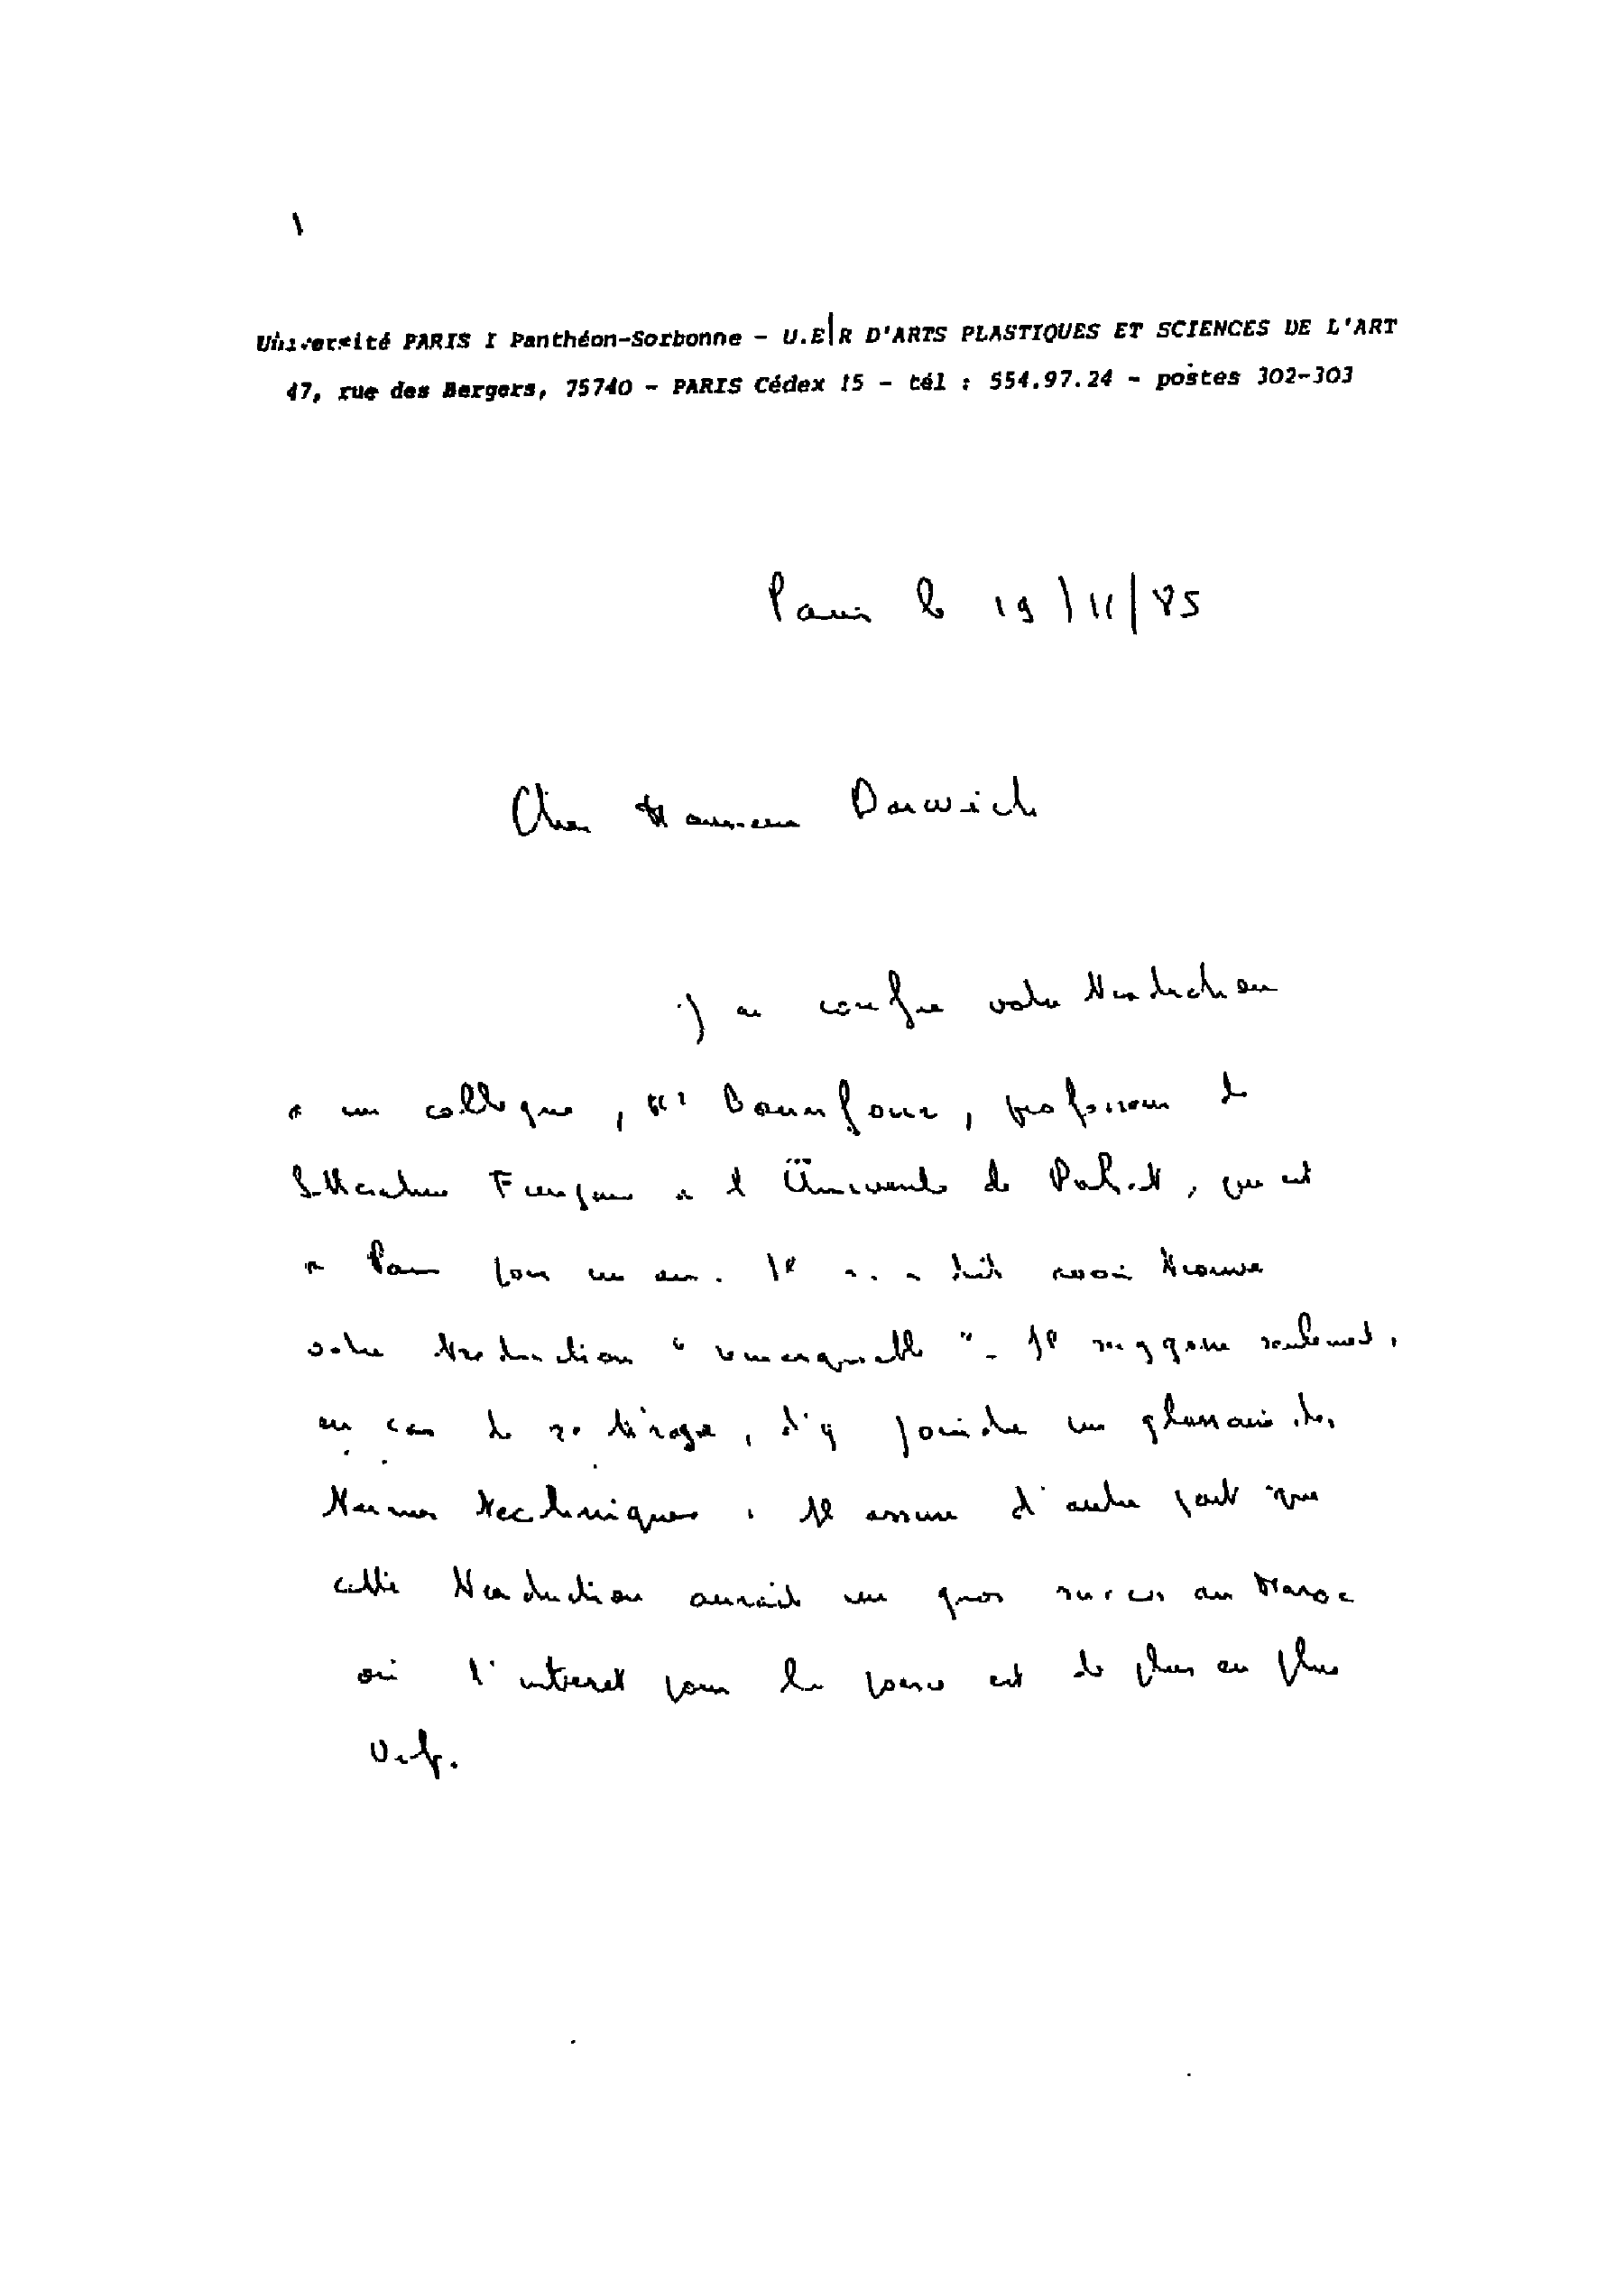 Université PARIS I Panthéon-Sorbonne - U.E.R D'ARTS PLASTIQUES ET SCIENCES DE L'ART
47, rue des Bergers, 75740 - PARIS Cédex 15 - tél : 554.97.24 - postes 302-303
Paris le 19/11/85
Cher Monsieur Darwich
j'ai confié votre traduction
à un collègue, Mr Bounfour, professeur de
littérature Française à l'Université de Rabat, qui est
à Paris pour un an. Il m'a dit avoir trouvé
votre traduction "remarquable" - Il suggère seulement,
en cas de re tirage, d'y joindre un glossaire des
termes techniques. Il assure d'autre part que
cette traduction aurait un gros succès au Maroc
où l'intérêt pour le est de plus en plus
vif.